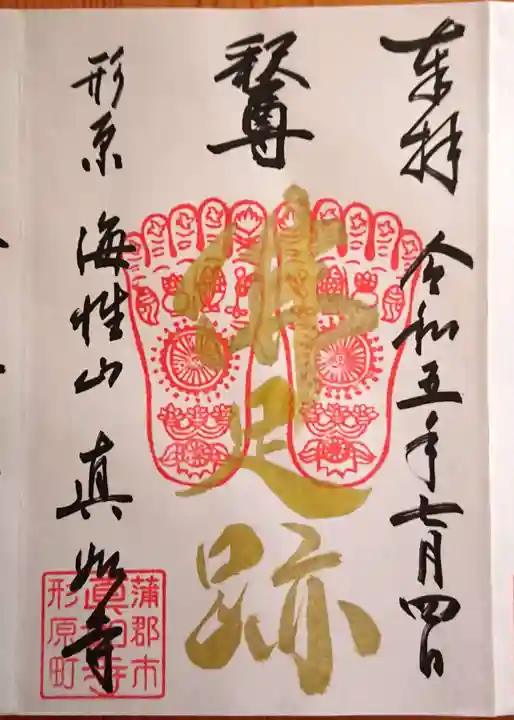 奉拝 令和五年七月四日
釈尊
佛足跡
形原 海性山 真如寺
蒲郡市
真如寺
形原町